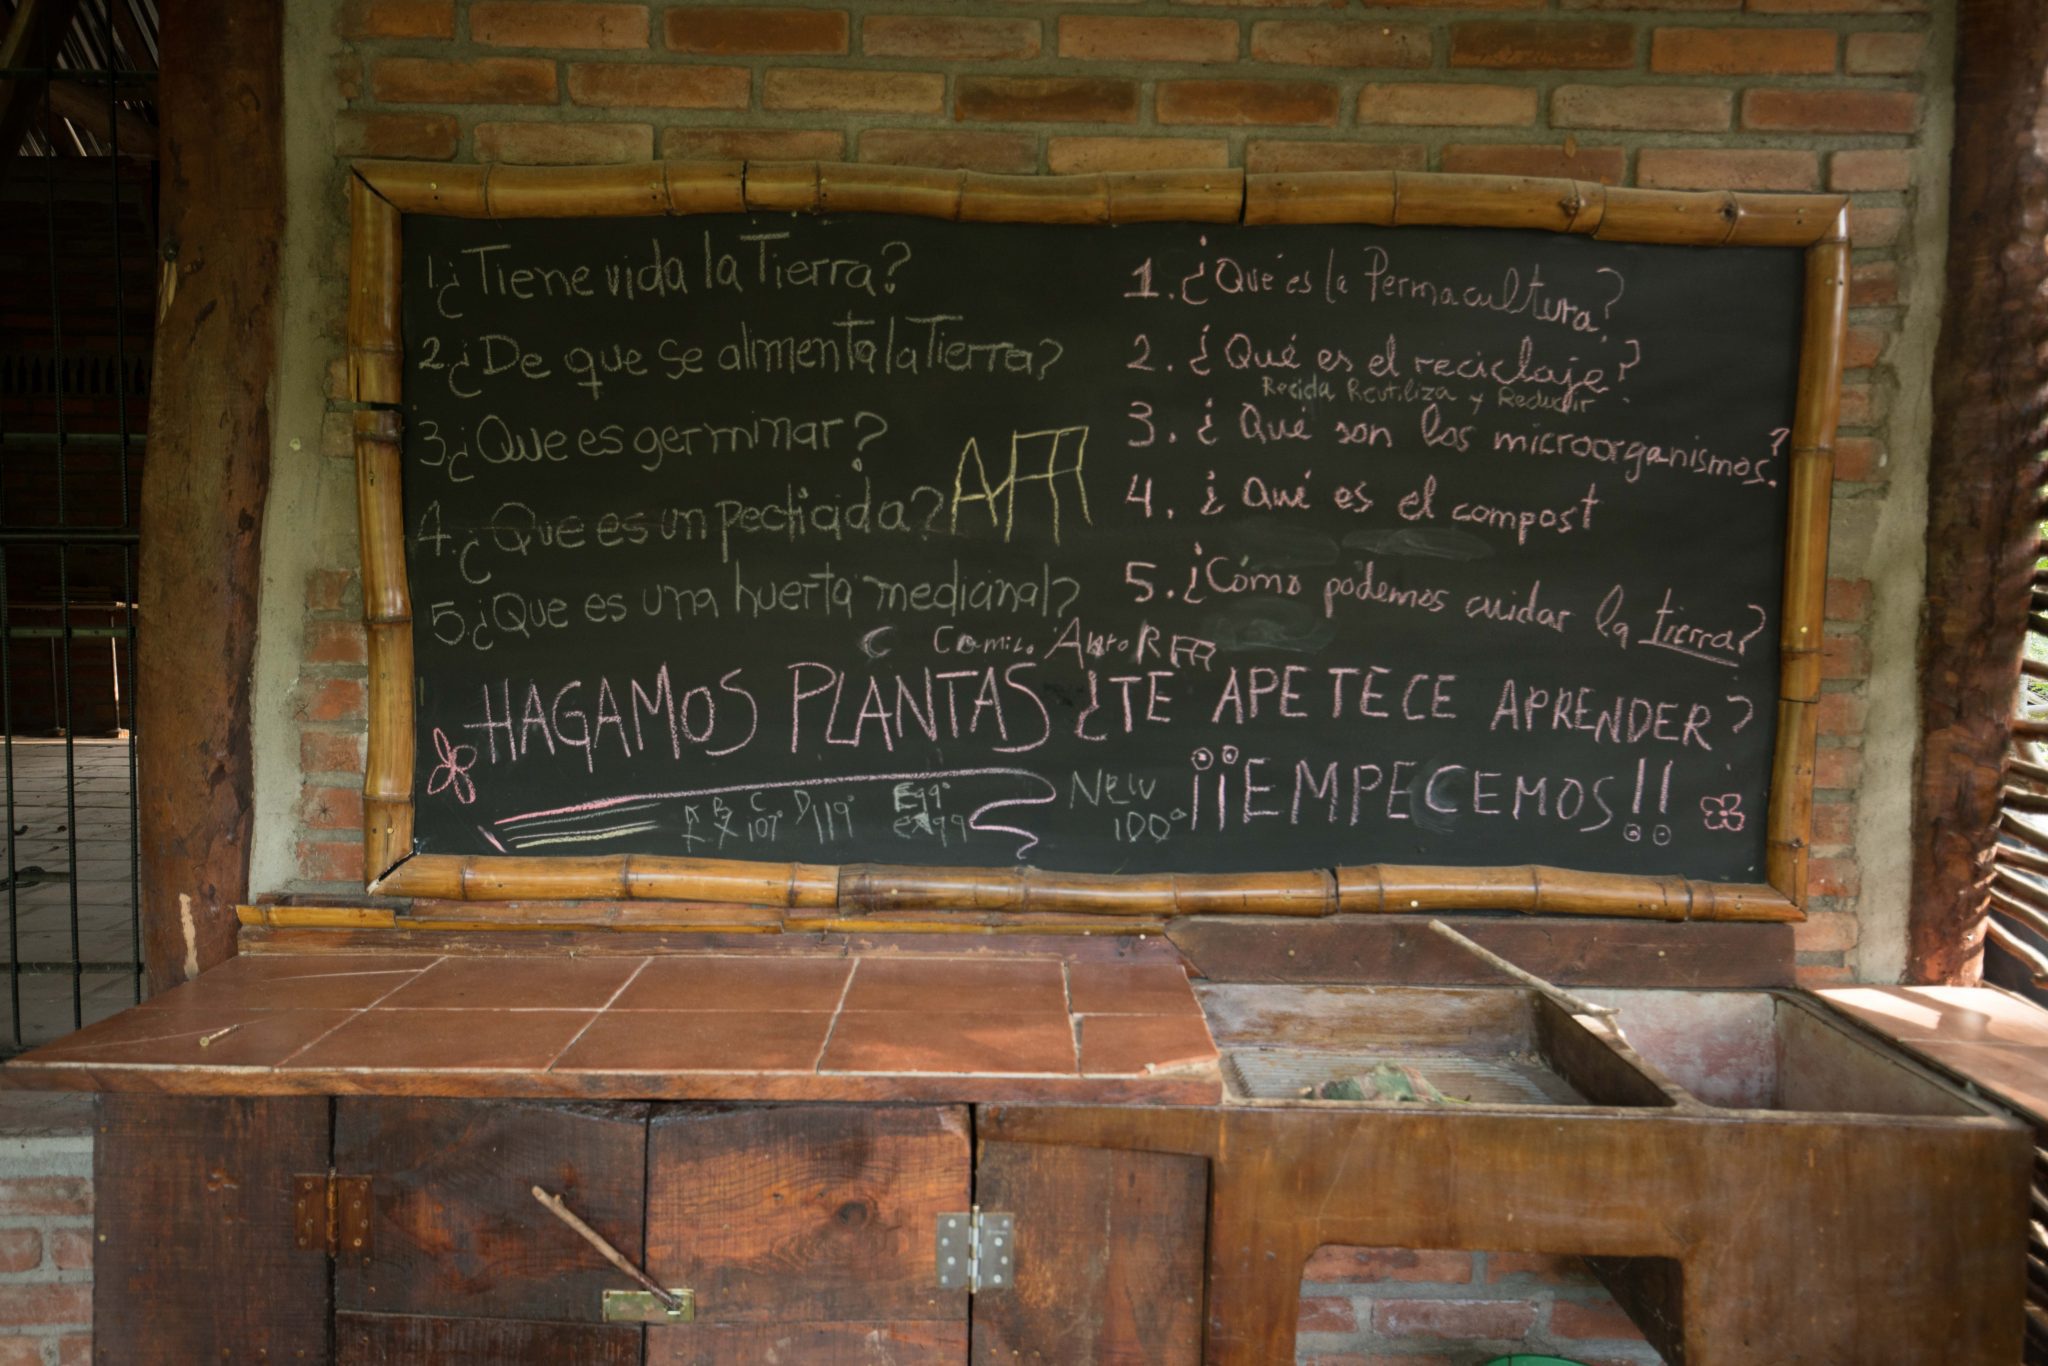 1. ¿Tiene vida la Tierra?
2. ¿De que se alimenta la Tierra?
3. ¿Que es germinar?
4. ¿Que es un pecticida?
5. ¿Que es una huerta medicinal?
1. ¿Qué es la Permacultura?
2. ¿Qué es el reciclaje?
Recicla Reutiliza y Reducir
3. ¿Qué son los microorganismos?
4. ¿Qué es el compost
5. ¿Cómo podemos cuidar la tierra?
C Camilo
HAGAMOS PLANTAS ¿TE APETECE APRENDER?
¡¡EMPECEMOS!!
A B C D 119°
107°
E99°
100°